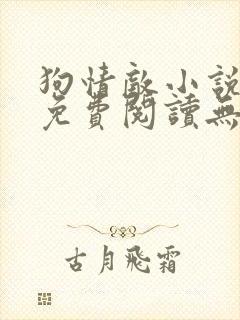 狗情敵小說
免費閱讀無
古月飛霜